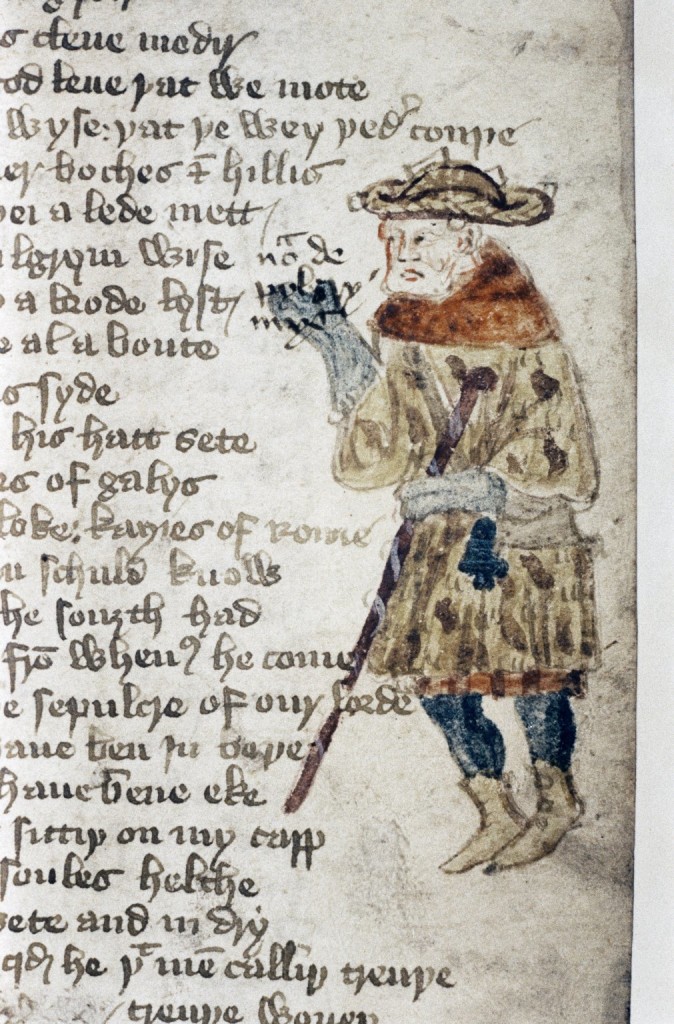 s cleue medys
od leue þat we mote
wyse: þat þe wey þedʼ couþe
er boches & hillis
þei a lede mett
lgrym wise
a brode lyst
e al a boute
s syde
his hatt sete
es of galys
loke: kayies of rome
u schuld know
he souȝth had
frō whenʼ he come
e sepulcre of our lorde
aue ben in
haue bene eke
sittiþ on my capp
soules helthe
wete and in dry
qd he þt mē calliþ treuþe
treuþe